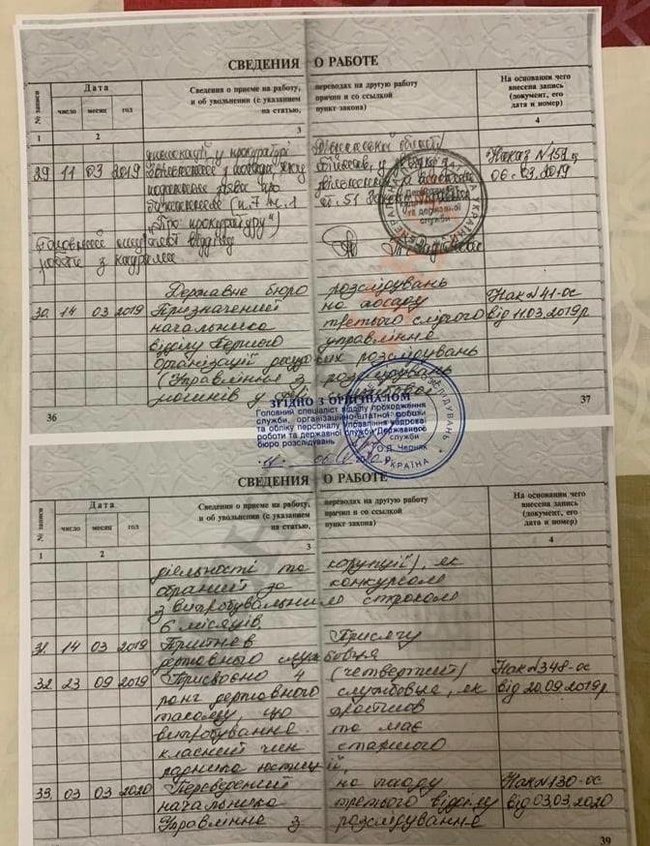 СВЕДЕНИЯ О РАБОТЕ
№ записи
Дата
число месяц год
Сведения о приеме на работу, переводах на другую работу
и об увольнении (с указанием причин и со ссылкой
на статью, пункт закона)
На основании чего
внесена запись
(документ, его
дата и номер)
1 2 3 4
прокуратурі області
29 11 03 2019 Наказ №151
06.03.2019
(п.7 ч.1
ст. 51
„Про прокуратуру")
роботи з кадрами
Державне бюро розслідувань
30. 14 03 2019 Призначений на посаду Нак №41-ос
начальника третього слідчого від 11.03.2019р
відділу Першого управління
організації досудових розслідувань
(Управління з розслідування
злочинів у
36 37
ЗГІДНО З ОРИГІНАЛОМ
Головний спеціаліст відділу проходження
служби, організаційно-штатної роботи
та обліку персоналу Управління кадрової
роботи та державної служби Державного
бюро розслідувань
О.Д. Черняк
УКРАЇНА
СВЕДЕНИЯ О РАБОТЕ
№ записи
Дата
число месяц год
Сведения о приеме на работу, переводах на другую работу
и об увольнении (с указанием причин и со ссылкой
на статью, пункт закона)
На основании чего
внесена запись
(документ, его
дата и номер)
1 2 3 4
діяльності та корупції), як
обраний за конкурсом
з випробувальним строком
6 місяців
31. 14 03 2019 Прийняв Присягу
державного службовця
32. 23 09 2019 Присвоєно 4 (четвертий) Нак №348-ос
ранг державного службовця, як від 20.09.2019р
такому, що пройшов
випробування та має
класний чин старшого
радника юстиції.
33. 03 03 2020 Переведений на посаду Нак №130-ос
начальника третього відділу від 03.03.2020
Управління з розслідування
39